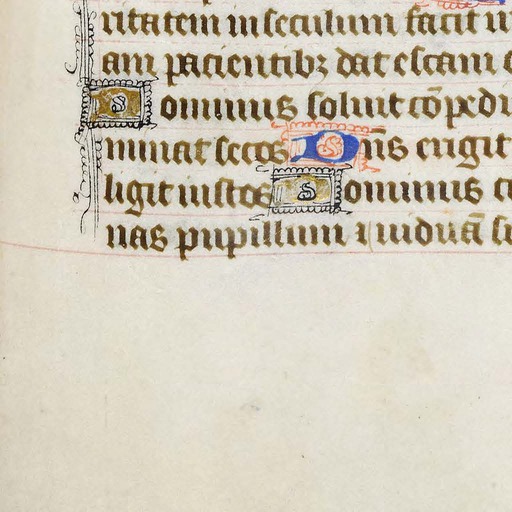 ritatem in seculum facit
am pacientibꝫ dat escam
Dominus soluit cōpedi
minat cecos Dn̄s erigit
ligit iustos Dominus
nas pupillum ⁊ uiduā